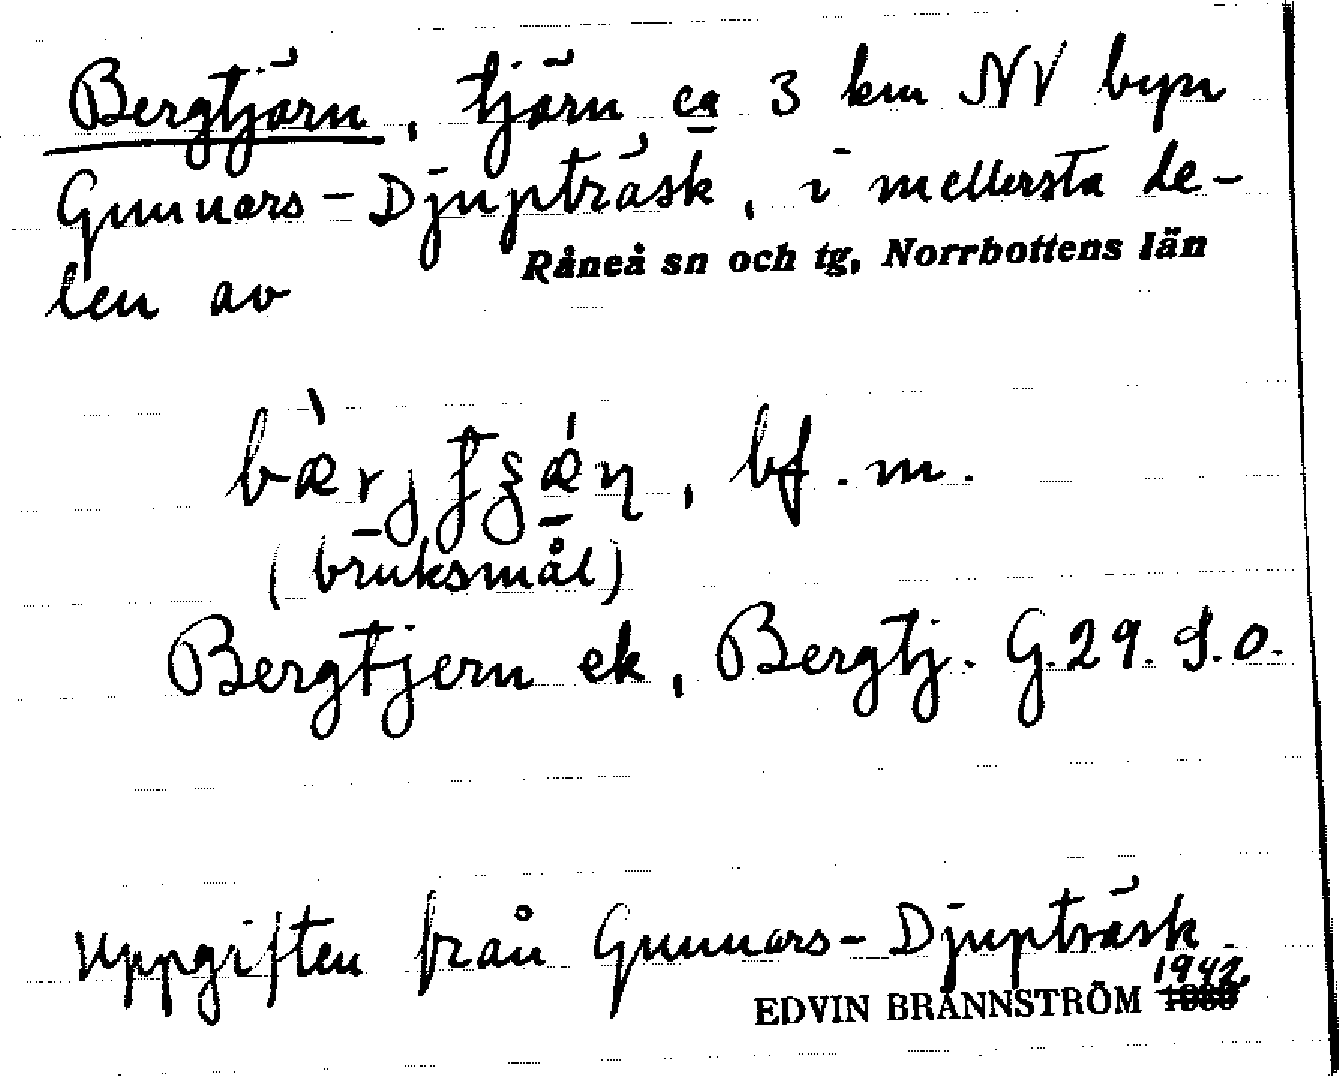 Bergtjärn, tjärn ca 3 km NV byn
Gunnars-Djupträsk, i mellersta de-
len av Råneå sn och tg, Norrbottens län
bf. m.
(bruksmål)
Bergtjern ek, Bergtj. G. 29. S.o.
Uppgiften från Gunnars-Djupträsk
EDVIN BRÄNNSTRÖM 1942.